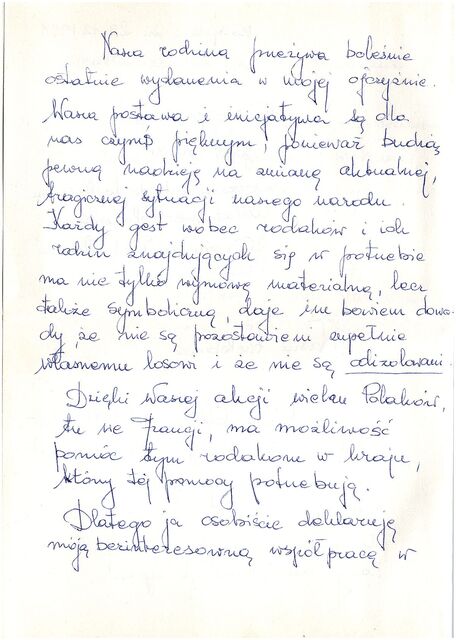 Nasza rodzina przeżywa boleśnie
ostatnie wydarzenia w mojej ojczyźnie.
Wasza postawa i inicjatywa są dla
nas czymś pięknym, ponieważ budzią
pewną nadzieję na zmianę aktualnej,
tragicznej sytuacji naszego narodu.
Każdy gest wobec rodaków i ich
rodzin znajdujących się w potrzebie
ma nie tylko wymowę materialną, lecz
także symboliczną, daje im bowiem dowo-
dy, że nie są pozostawieni zupełnie
własnemu losowi i że nie są odizolowani.
Dzięki Waszej akcji wielu Polaków,
tu we Francji, ma możliwość
pomóc tym rodakom w kraju,
który tej pomocy potrzebują.
Dlatego ja osobiście deklaruję
moją bezinteresowną współpracę w